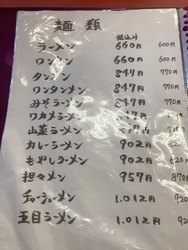 麺類
税込み
ラーメン 660円 600円
ロンメン 660円 600円
タンメン 847円 770円
ワンタンメン 847円 770円
みそラーメン 847円 770円
ワカメラーメン
山菜ラーメン
カレーラーメン 902円
もやしラーメン 902円
担々メン 957円 870円
チャーシューメン 1.012円 920
五目ラーメン 1.012円